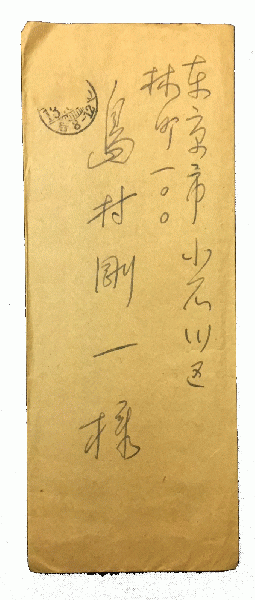 東京市小石川区
林町一〇〇
島村剛一様